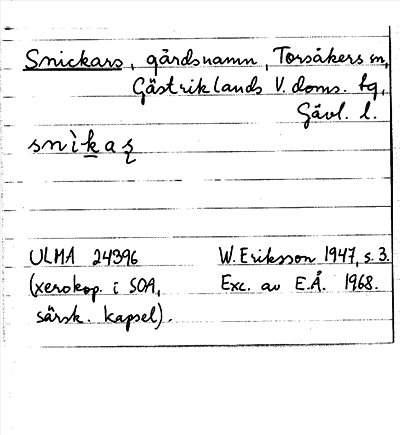 Snickars, gårdsnamn, Torsåkers sn,
Gästriklands V. doms. tg,
Gävl. l.
snìkaʂ
ULMA 24396
(xerokop. i SOA,
särsk. kapsel).
W. Eriksson 1947, s. 3.
Exc. av E.Å. 1968.